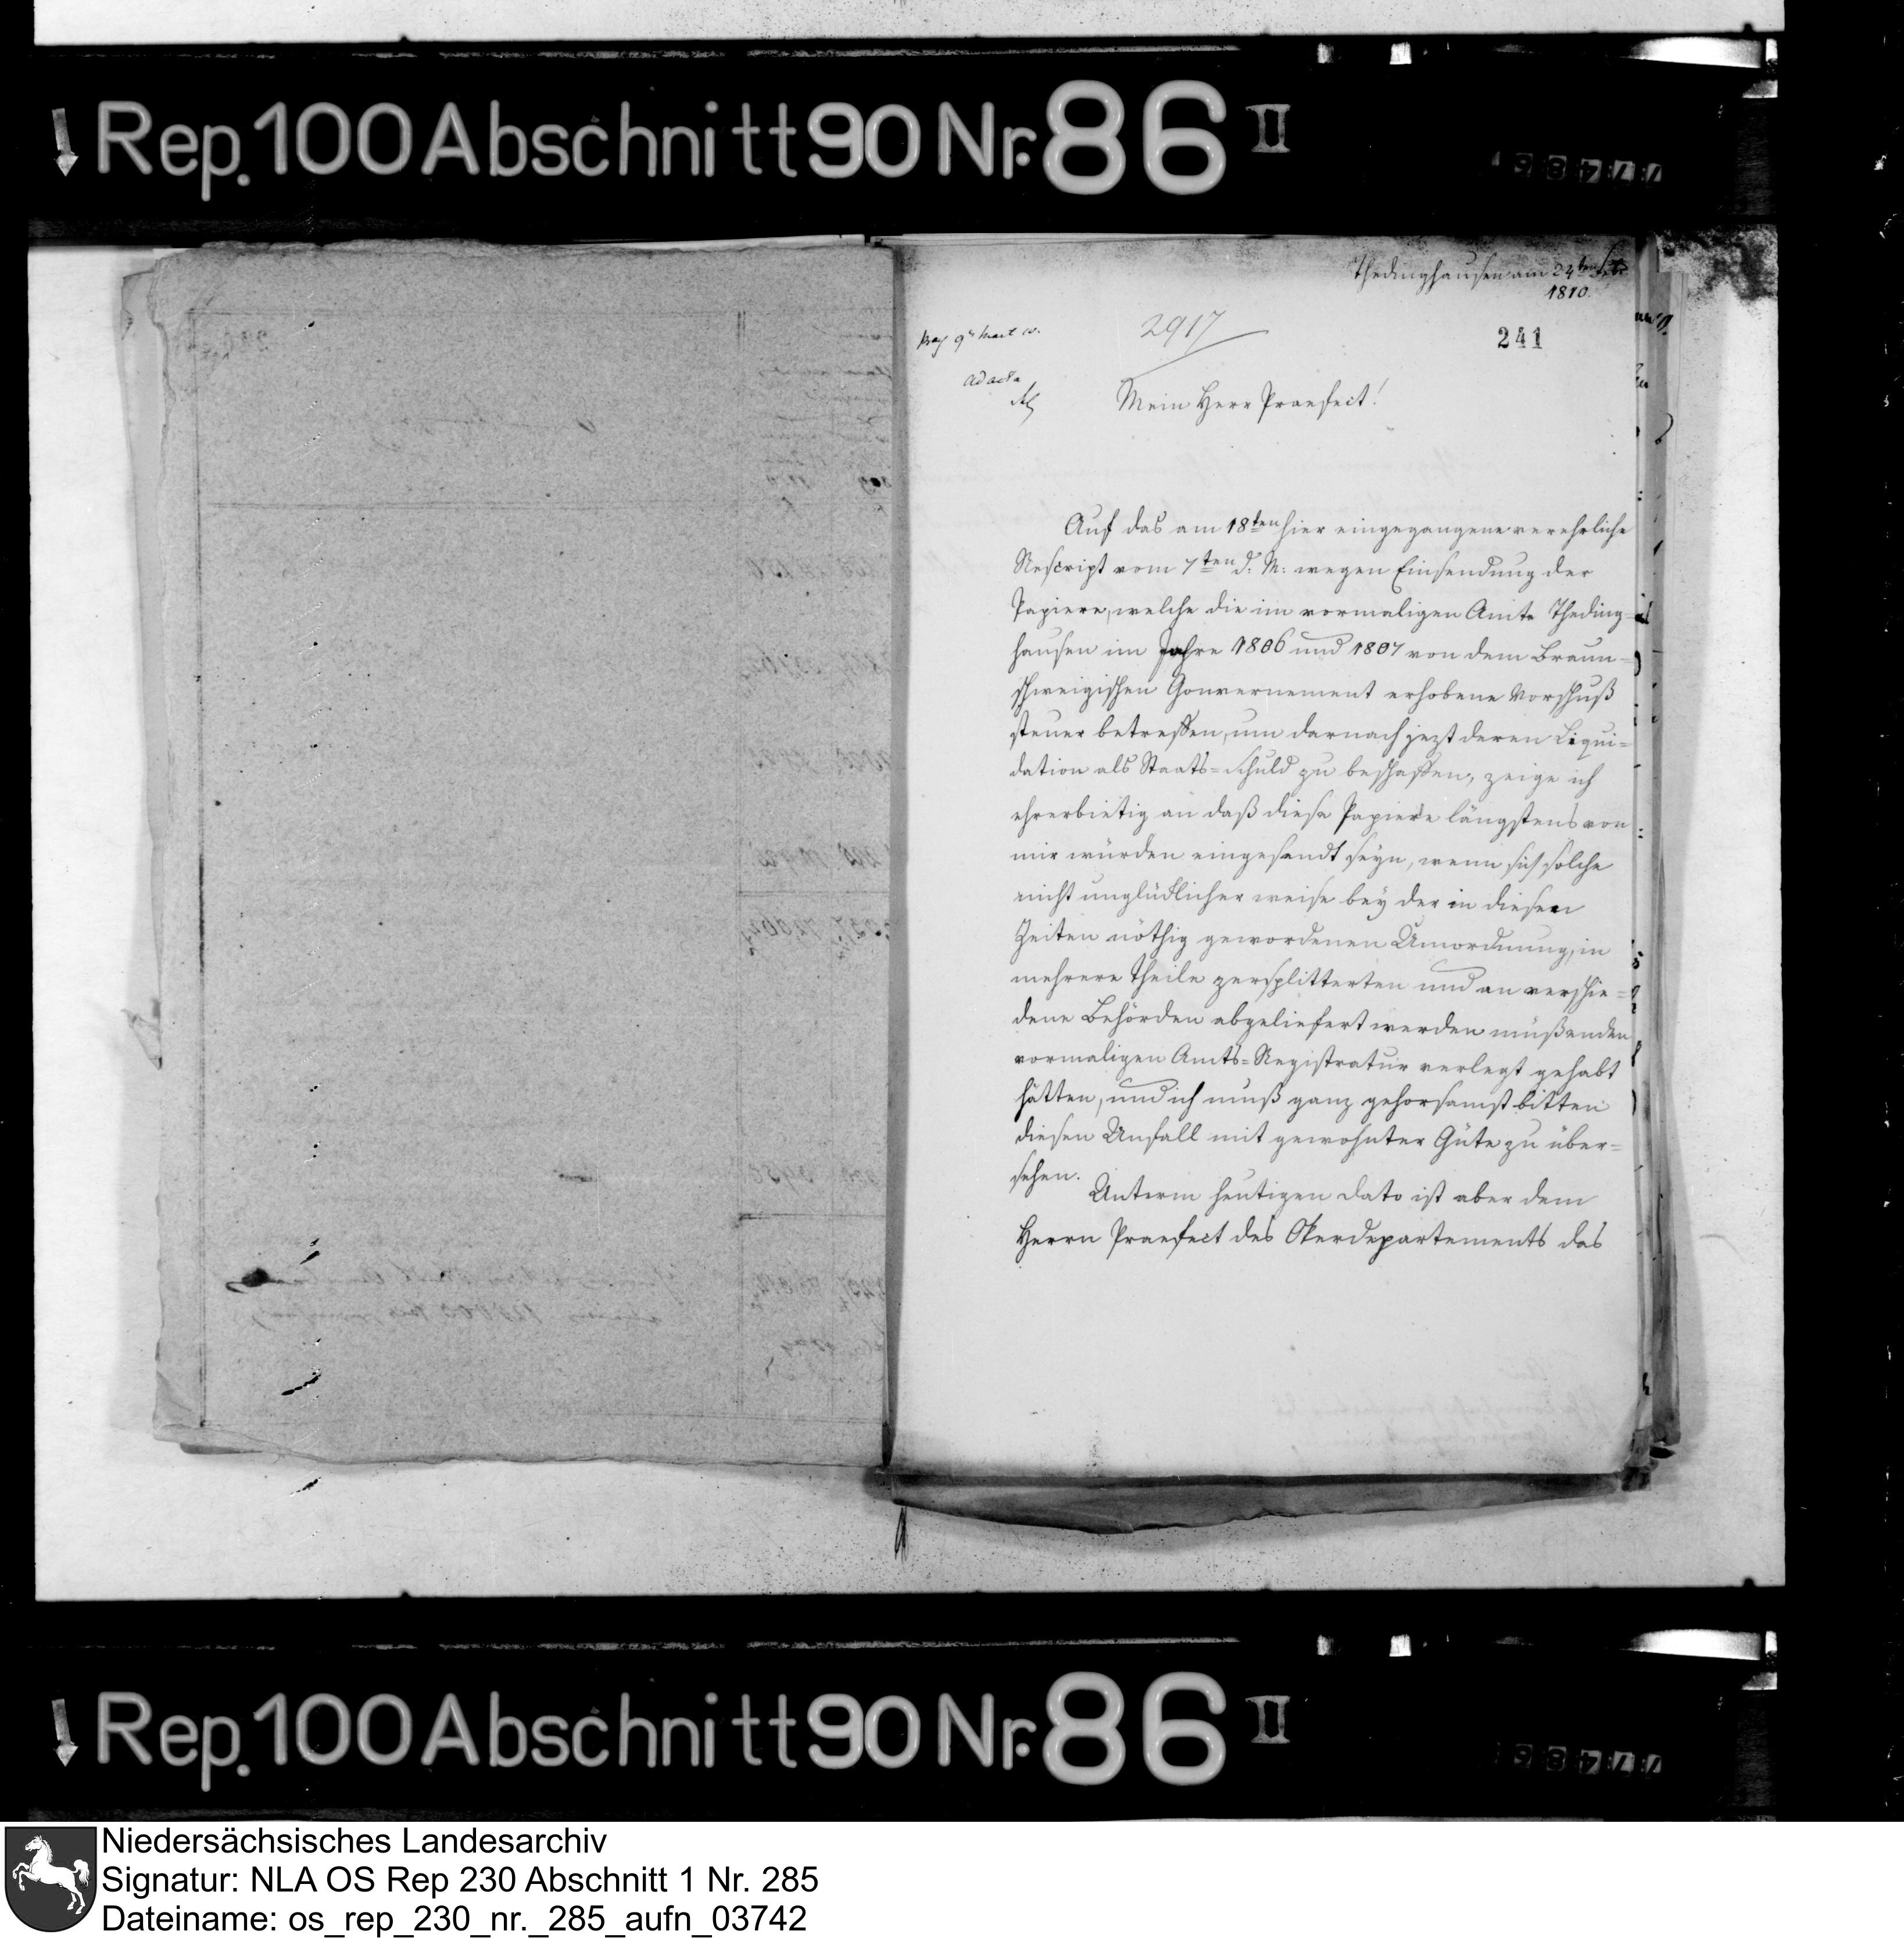 Rep. 100 Abschnitt 90 Nr. 86 II
77486
Thedinghausen am 24ten Febr
1810.
2917
241
ad acta
Mein Herr Praefect!
Auf das am 18ten hier eingegangene verehrliche
Rescript vom 7ten d. M: wegen Einsendung der
Papiere, welche die im vormaligen Amte Theding-
hausen im Jahre 1806 und 1807 von dem Braun-
schweigischen Gouvernement erhobene Vorschuß
steuer betreffen, um darnach jezt deren Liqui-
dation als Staats-Schuld zu beschaffen, zeige ich
ehrerbietig an daß diese Papiere längstens von
mir würden eingesandt seyn, wenn sich solche
nicht unglücklicher weise bey der in diesen
Zeiten nöthig gewordenen Umordnung, in
mehrere Theile zersplitterten und an verschie-
dene Behörden abgeliefert werden müßenden
vormaligen Amts-Registratur verlegt gehabt
hätten, und ich muß ganz gehorsamst bitten
diesen Unfall mit gewohnter Güte zu über-
sehen.
Unterm heutigen dato ist aber dem
Herrn Praefect des Okerdepartements das
Rep. 100 Abschnitt 90 Nr. 86 II
77486
Niedersächsisches Landesarchiv
Signatur: NLA OS Rep 230 Abschnitt 1 Nr. 285
Dateiname: os_rep_230_nr._285_aufn_03742